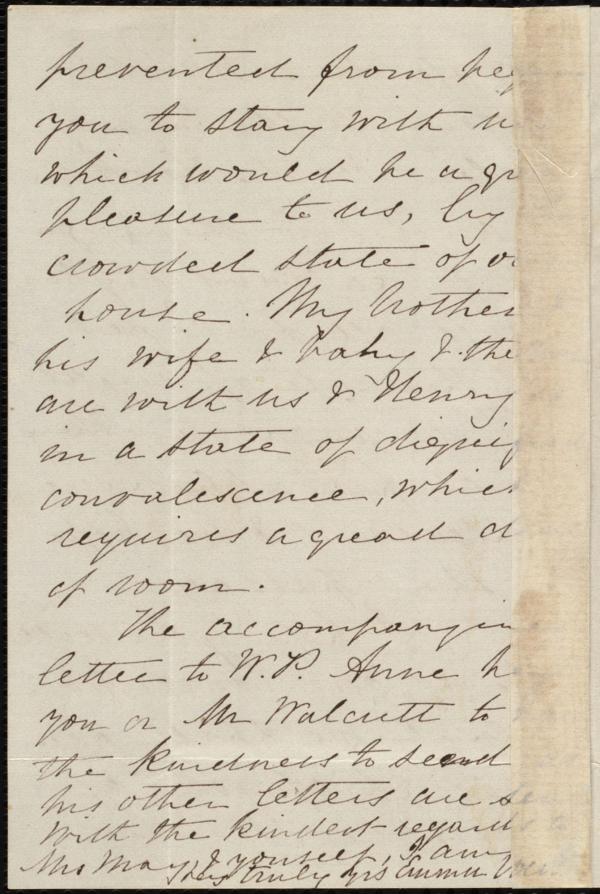 prevented from
you to stay with
which would be a
pleasure to us, by
crowded state of
house. My brother
his wife & baby & the
are with us & Henry
in a state of
convalescence, which
requires a great
of room.
The accompanying
letter to W.P. Anne
you or Mr Walcutt to
the kindness to send
his other letters are
With the kindest regards
Mrs May, & yourself, I am
truly yrs Emma